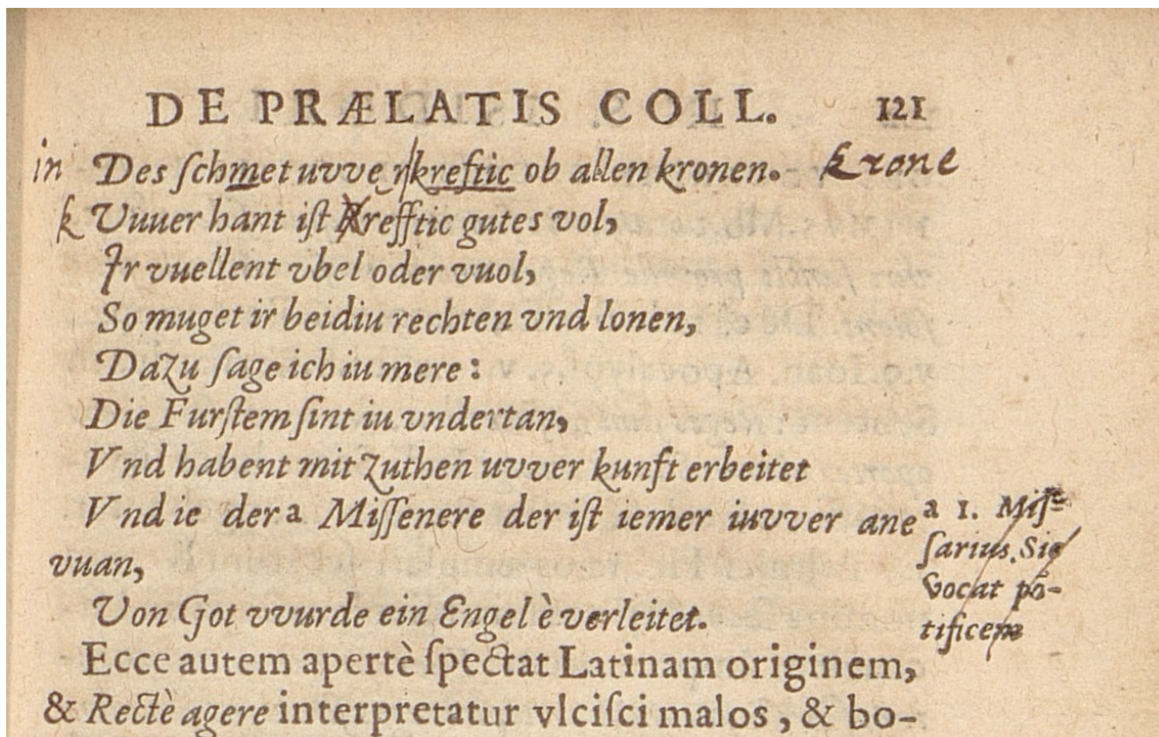 DE PRÆLATIS COLL. 121
in Des ſchmet uvve r kreftic ob allen kronen. krone
k Uuuer hant iſt Krefftic gutes vol,
Ir vuellent vbel oder vuol,
So muget ir beidiu rechten vnd lonen,
Dazu ſage ich iu mere:
Die Furſtem ſint iu vndertan,
Vnd habent mit zuthen uvver kunft erbeitet
Vnd ie der a Miſſenere der iſt iemer iuvver ane
vuan,
Von Got vvurde ein Engel è verleitet.
a 1. Miſ-
ſarius. Sic
vocat põ-
tificem
Ecce autem apertè ſpectat Latinam originem,
& Rectè agere interpretatur vlciſci malos, & bo-